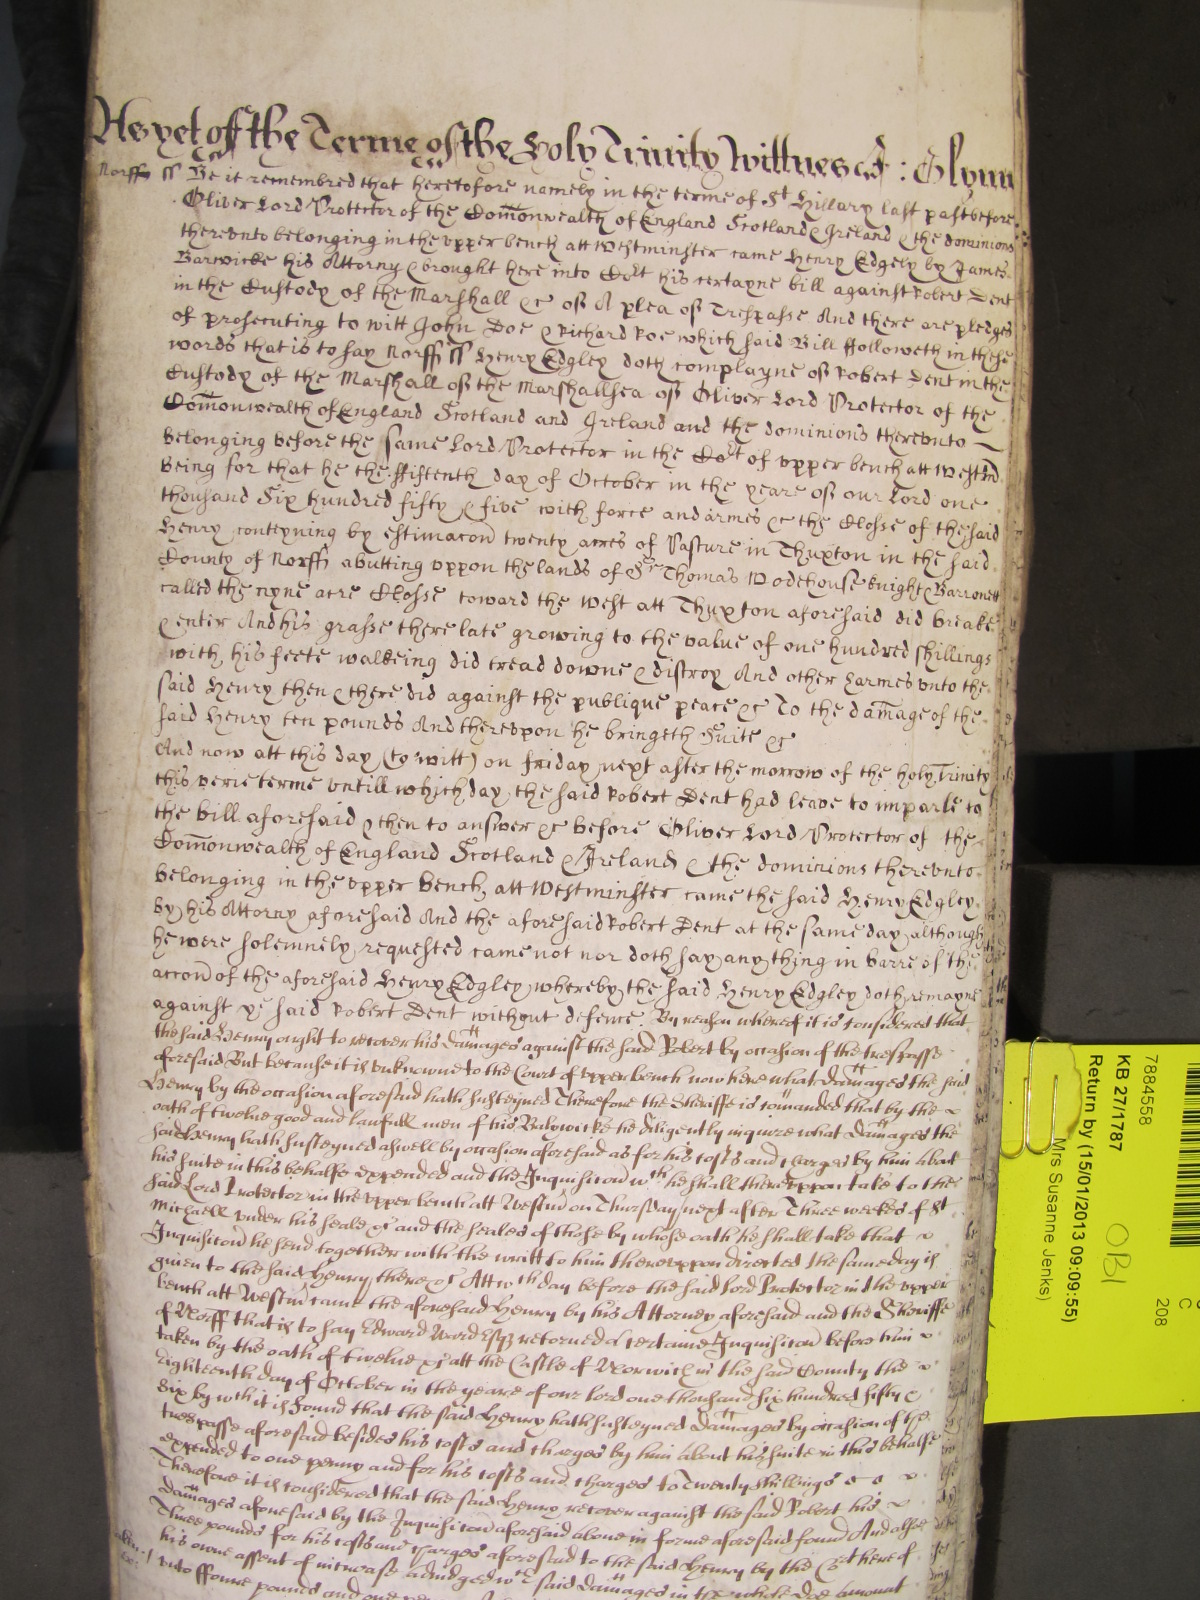 As yet of the Terme of the Holy Trinity Wittnes &c: Glynn
Norff ss Be it remembred that heretofore namely in the terme of St Hillary last past before
Oliver Lord Protector of the Com̄onwealth of England Scotland & Ireland & the dominions
therevnto belonging in the vpper bench att Westminster came Henry Edgely by James
Barwicke his Attorny & brought here into Cot his certayne bill against Robert Dent
in the Custody of the Marshall &c of A plea of Trespasse And there are pledges
of prosecuting to witt John Doe & Richard Roe which said Bill ffolloweth in these
words that is to say Norff ss Henry Edgley doth complayne of Robert Dent in the
Custody of the Marshall of the Marshallsea of Oliver Lord Protector of the
Com̄onwealth of England Scotland and Ireland and the dominions therevnto
belonging before the same Lord Protector in the Cot of vpper bench att Westm̄
being for that he the ffiftenth day of October in the yeare of our Lord one
thousand Six hundred fifty & five with force and armes &c the Closse of the said
Henry conteyning by estimacon twenty acres of Pasture in Thuxton in the said
County of Norff abutting vppon the lands of Sr Thomas Wodehouse knight & Barronett
called the nyne acre Closse toward the West att Thuxton aforesaid did breake
& enter And his grasse there late growing to the value of one hundred shillings
with his feete walkeing did tread downe & distroy And other harmes vnto the
said Henry then & there did against the publique peace &c To the dam̄age of the
said Henry ten pounds And therevpon he bringeth Suite &c
And now att this day (to witt) on friday next after the morrow of the holy Trinity
this verie terme vntill which day the said Robert Dent had leave to imparle to
the bill aforesaid & then to answer &c before Oliver Lord Protector of the
Com̄onwealth of England Scotland & Ireland & the dominions therevnto
belonging in the vpper bench att Westminster came the said Henry Edgley
by his Attorny aforesaid And the aforesaid Robert Dent at the same day although
he were solemnely requested came not nor doth say any thing in barre of the
accon of the aforesaid Henry Edgley whereby the said Henry Edgley doth remayne
against ye said Robert Dent without defence. By reason whereof it is considered that
the said Henry ought to recover his dam̄ages against the said Robert by occasion of the trespasse
aforesaid But because it is vnknowne to the Court of vpper bench now here what dam̄ages the said
Henry by the occasion aforesaid hath susteyned Therefore the Sheriffe is com̄anded that by the
oath of twelve good and lawfull men of his Balywicke he diligently inquire what dam̄ages the
said Henry hath susteyned aswell by occasion aforesaid as for his costs and charges by him about
his suite in this behalfe expended and the Inquisicon wch he shall therevppon take to the
said Lord Protector in the vpper bench att Westm̄ on Thursday next after Three weekes of St
Michaell vnder his seale &c and the seales of those by whose oath he shall take that
Inquisicon he send together with the writt to him therevppon directed the same day is
given to the said Henry there &c Att wch day before the said Lord Protector in the vpper
bench att Westm̄ came the aforesaid Henry by his Attorney aforesaid and the Sheriffe
of Norff that is to say Edward Ward Esqr retorned a certaine Inquisicon before him
taken by the oath of twelve &c att the Castle of Norwich in the said County the
Eighteenth day of October in the yeare of our lord one thousand six hundred fifty &
Six by wch it is found that the said Henry hath susteyned dam̄ages by occasion of the
trespasse aforesaid besides his costs and charges by him about his suite in this behalfe
expended to one penny and for his costs and charges to Twenty shillings
Therefore it is considered that the said Henry recover against the said Robert his
dam̄ages aforesaid by the Inquisicon aforesaid above in forme aforesaid found And alsoe
Three pounds for his costs and charges aforesaid to the said Henry by the Cot here of
his owne assent of increase adiudged wch said dam̄ages in the whole doe amount
vnto ffoure pounds and one
7884558
KB 27/1787
Return by (15/01/2013 09:09:55)
Mrs Susanne Jenks)
OBI
C
208